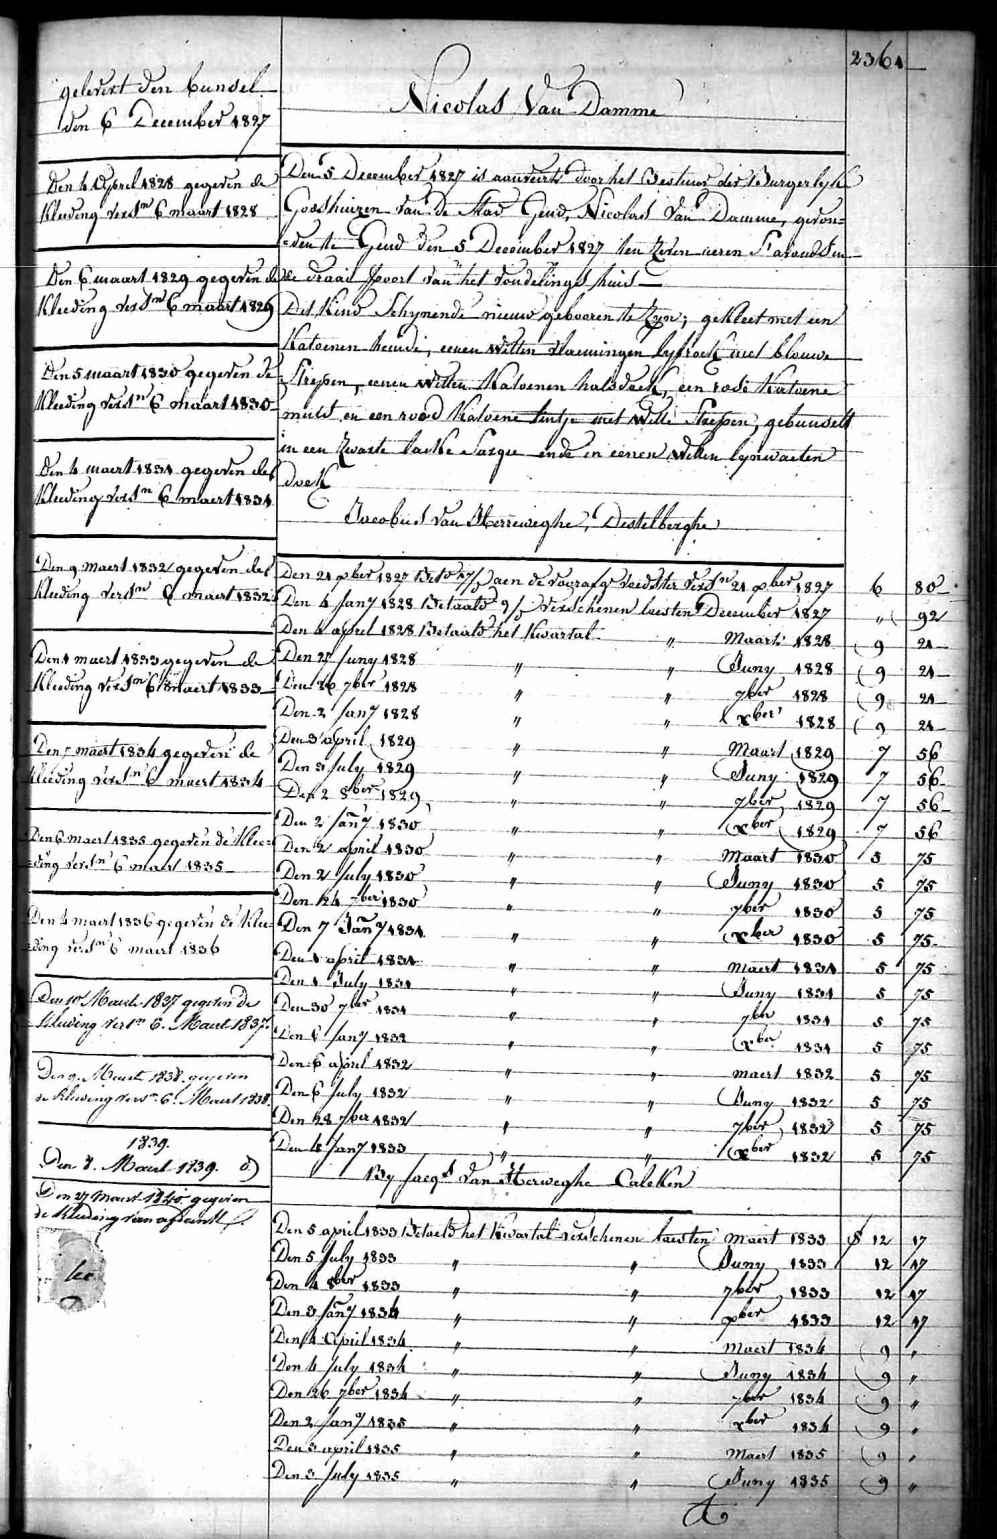 2361
gelevert den bunsel
den 6 December 1827
Den 4 April 1828 gegeven de
Kleeding versn 6 maart 1828
Den 6 maart 1829 gegeven de
Kleeding versn 6 maart 1829
Den 5 maart 1830 gegeven de
Kleeding versn 6 maart 1830
Den 4 maert 1831 gegeven de
Kleeding versn 6 maert 1831
Den 9 maert 1832 gegeven de
Kleeding versn 6 maert 1832
Den 1 maert 1833 gegeven de
Kleeding versn 6 maert 1833
Den 7 maert 1834 gegeven de
Kleeding versn 6 maert 1834
Den 6 maert 1835 gegeven de Klee=
=ding versn 6 maert 1835
Den 4 maert 1836 gegeven de Klee=
=ding versn 6 maert 1836
Den 10 Maert 1837 gegeven de
Kleeding versn 6. Maert 1837.
Den 9. Maert 1838. gegeven
de Kleeding versn 6. Maert 1838.
1839.
Den 8. Maert 1839.
Den 27 Maert 1840 gegeven
de Kleeding van
Nicolas Van Damme
Den 5 December 1827 is aanveirt door het Bestuur der Burgerlyke
Godshuizen van de Stad Gend, Nicolas Van Damme, gevon=
=den te Gend den 5 December 1827 ten zeven uren S'avonds in
de draai poort van het vondelings huis
Dit Kind Schynende nieuw gebooren te zyn; gekleet met een
Katoenen hemde, eenen witten vlaemingen lyfrock met blouwe
Strepen, eenen witten Katoenen halsdoek, een rode Katoene
muts en een rood Katoene lintje met witte Strepen, gebunselt
in een zwarte Sargie ende in eenen witten lynwaeten
doek
Jacobus van Herreweghe, Destelberghe
Den 21 xber 1827 Bet aen de voorafge versn 21 xber 1827 6 80
Den 4 Jany 1828 Betaald verschenen laesten December 1827 " 92
Den 4 april 1828 Betaald het Kwartal " Maart 1828 9 21
Den 27 Juny 1828 " " Juny 1828 9 21
Den 26 7ber 1828 " " 7ber 1828 9 21
Den 2 Jany 1828 " " xber 1828 9 21
Den 3 april 1829 " " Maart 1829 7 56
Den 3 July 1829 " " Juny 1829 7 56
Den 2 8ber 1829 " " 7ber 1829 7 56
Den 2 Jany 1830 " " xber 1829 7 56
Den 2 april 1830 " " Maart 1830 5 75
Den 2 July 1830 " " Juny 1830 5 75
Den 24 7ber 1830 " " 7ber 1830 5 75
Den 7 Jany 1831 " " xber 1830 5 75
Den 1 april 1831 " " Maert 1831 5 75
Den 1 July 1831 " " Juny 1831 5 75
Den 30 7ber 1831 " " 7ber 1831 5 75
Den 6 Jany 1832 " " xber 1831 5 75
Den 6 april 1832 " " maert 1832 5 75
Den 6 July 1832 " " Juny 1832 5 75
Den 28 7ber 1832 " " 7ber 1832 5 75
Den 4 Jany 1833 " " xber 1832 5 75
By Jacqs Van Herweghe Calcken
Den 5 april 1833 Betaeld het Kwartal verschenen laesten maert 1833 12 17
Den 5 July 1833 " " Juny 1833 12 17
Den 4 8ber 1833 " " 7ber 1833 12 17
Den 3 Jany 1834 " " xber 1833 12 17
Den 4 April 1834 " " maert 1834 9 "
Den 4 July 1834 " " Juny 1834 9 "
Den 26 7ber 1834 " " 7ber 1834 9 "
Den 2 Jany 1835 " " xber 1834 9 "
Den 3 april 1835 " " Maert 1835 9 "
Den 3 July 1835 " " Juny 1835 9 "